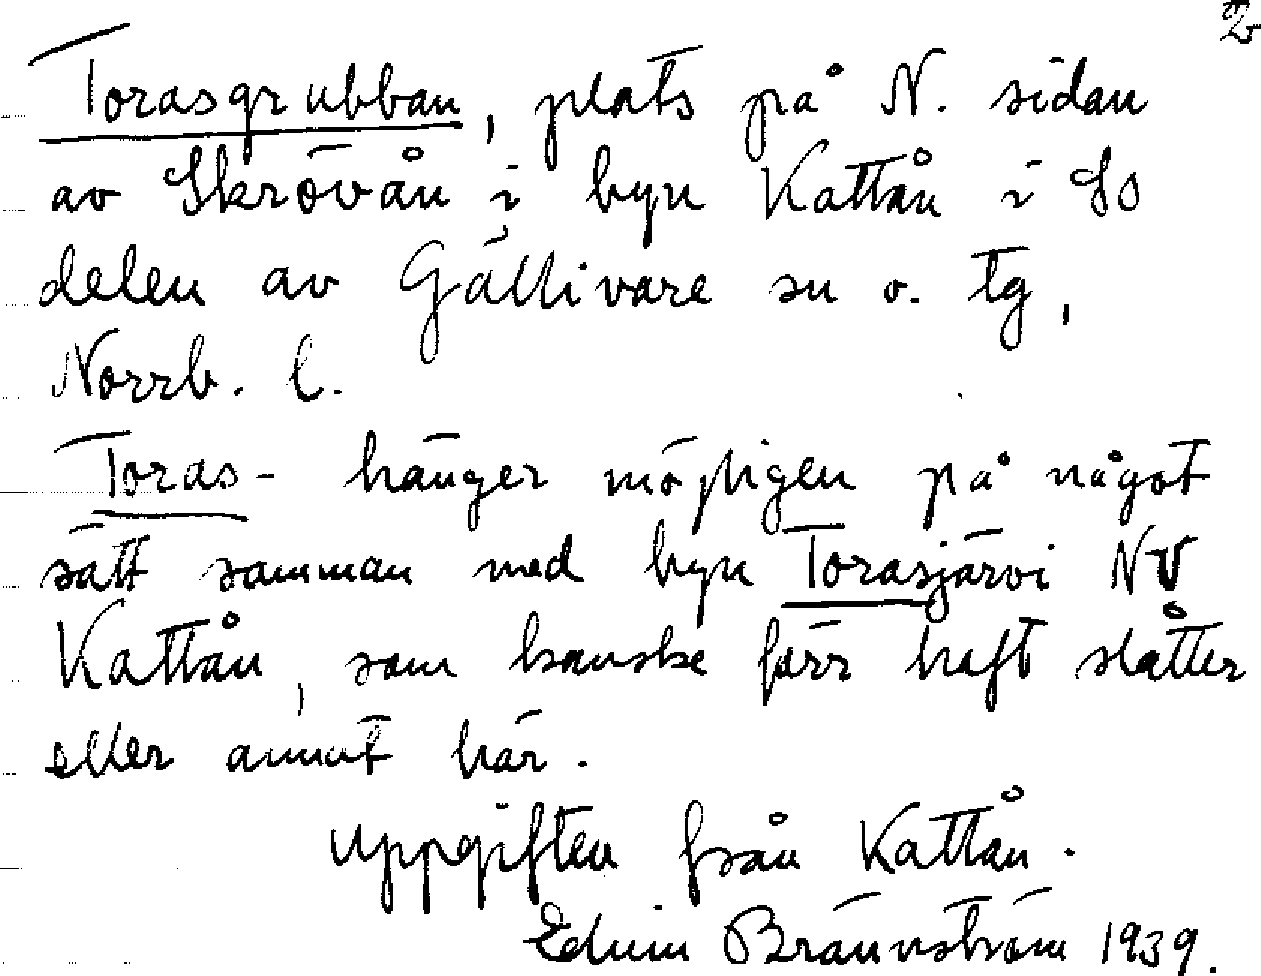 2
Torasgrubban, plats på N. sidan
av Skrövån i byn Kattån i SO
delen av Gällivare sn o. tg,
Norrb. l.
Toras- hänger möjligen på något
sätt samman med byn Torasjärvi NV
Kattån, som kanske förr haft slåtter
eller annat här.
Uppgiften från Kattån.
Edvin Brännström 1939.